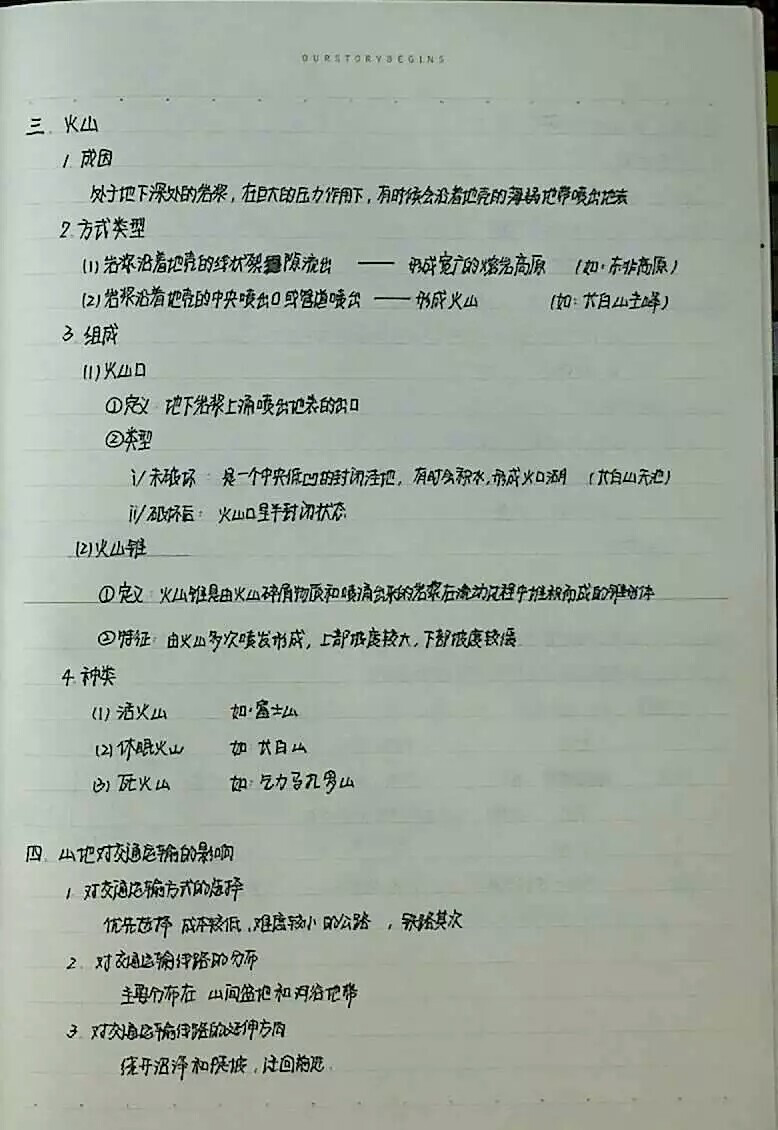 OURSTORYBEGINS
三. 火山
1. 成因
处于地下深处的岩浆，在巨大的压力作用下，有时候会沿着地壳的薄弱地带喷出地表
2. 方式类型
(1) 岩浆沿着地壳的线状裂隙流出 —— 形成宽广的熔岩高原 (如：东非高原)
(2) 岩浆沿着地壳的中央喷出口或管道喷出 —— 形成火山 (如：长白山主峰)
3. 组成
(1) 火山口
①定义：地下岩浆上涌喷出地表的出口
②类型
i/ 未破坏：是一个中央低凹的封闭洼地，有时会积水，形成火口湖 (长白山天池)
ii/ 破坏后：火山口呈半封闭状态
(2) 火山锥
①定义：火山锥是由火山碎屑物质和喷涌出来的岩浆在流动过程中堆积而成的锥形体
②特征：由火山多次喷发形成，上部坡度较大，下部坡度较缓
4. 种类
(1) 活火山 如：富士山
(2) 休眠火山 如：长白山
(3) 死火山 如：乞力马扎罗山
四. 山地对交通运输的影响
1. 对交通运输方式的选择
优先选择 成本较低，难度较小的公路，铁路其次
2. 对交通运输线路的分布
主要分布在 山间盆地和河谷地带
3. 对交通运输线路的延伸方向
绕开沼泽和陡坡，迂回前进.